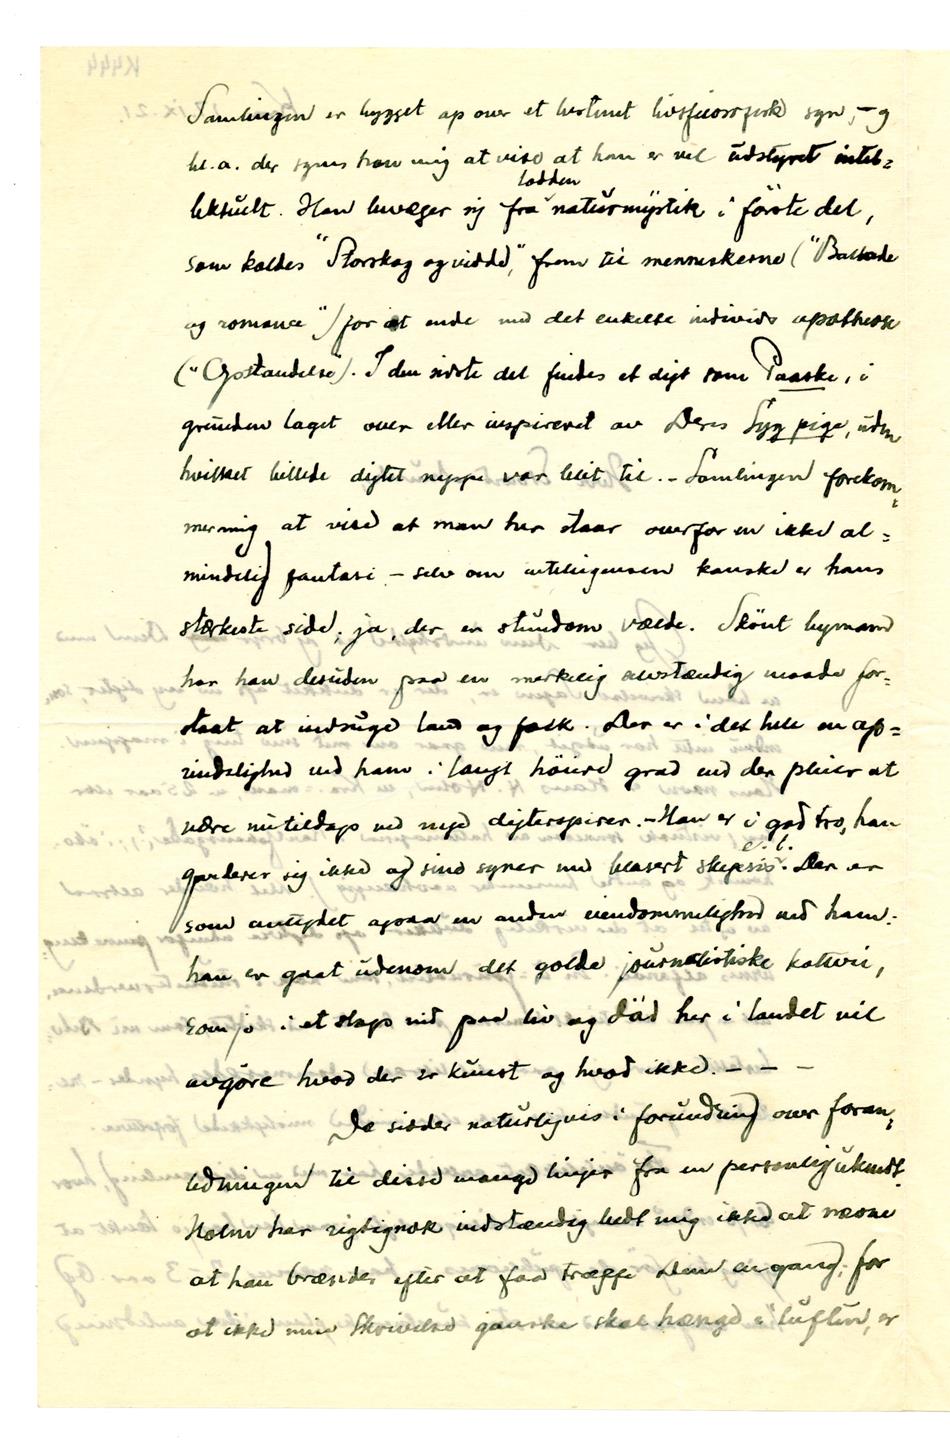 K444
Samlingen er bygget op over et bestemt livsfilosofisk syn, – og
bl.a. der synes han mig at vise at han er vel udstyret intel=
lektuelt. Han bevæger sig fra lodden naturmystik i første del,
som kaldes "Storskog og vidde", frem til menneskerne ("Ballade
og romance") for at ende med det enkelte individs apotheose
("Opstandelse"). I den sidste del findes et digt som Paaske, i
grunden laget over eller inspireret av Deres Syg pige, uden
hvilket billede digtet neppe var blit til. – Samlingen forekom=
mer mig at vise at man her staar overfor en ikke al=
mindelig fantasi – selv om intelligensen kanske er hans
stærkeste side; ja, der er stundom vælde. Skönt bymand
har han desuden paa en merkelig selvstændig maade for=
staat at indsuge land og folk. Der er i det hele en op=
rindelighed ved ham i langt höiere grad end der pleier at
være nutildags ved nye digterspirer. – Han er i god tro, han
garderer sig ikke og sine syner med blasert skepsis e.l. Der er
som antydet ogsaa en anden eiendommelighed ved ham:
han er gaat udenom det golde journalistiske kattevil,
som jo i et slags nid paa liv og död her i landet vil
avgöre hvad der er kunst og hvad ikke. – – –
De sidder naturligvis i forundring over foran=
ledningen til disse mange linjer fra en personlig ukendt.
Holm har rigtignok indstændig bedt mig ikke at nævne
at han brænder efter at faa træffe Dem engang; for
at ikke min skrivelse ganske skal hænge i luften, er